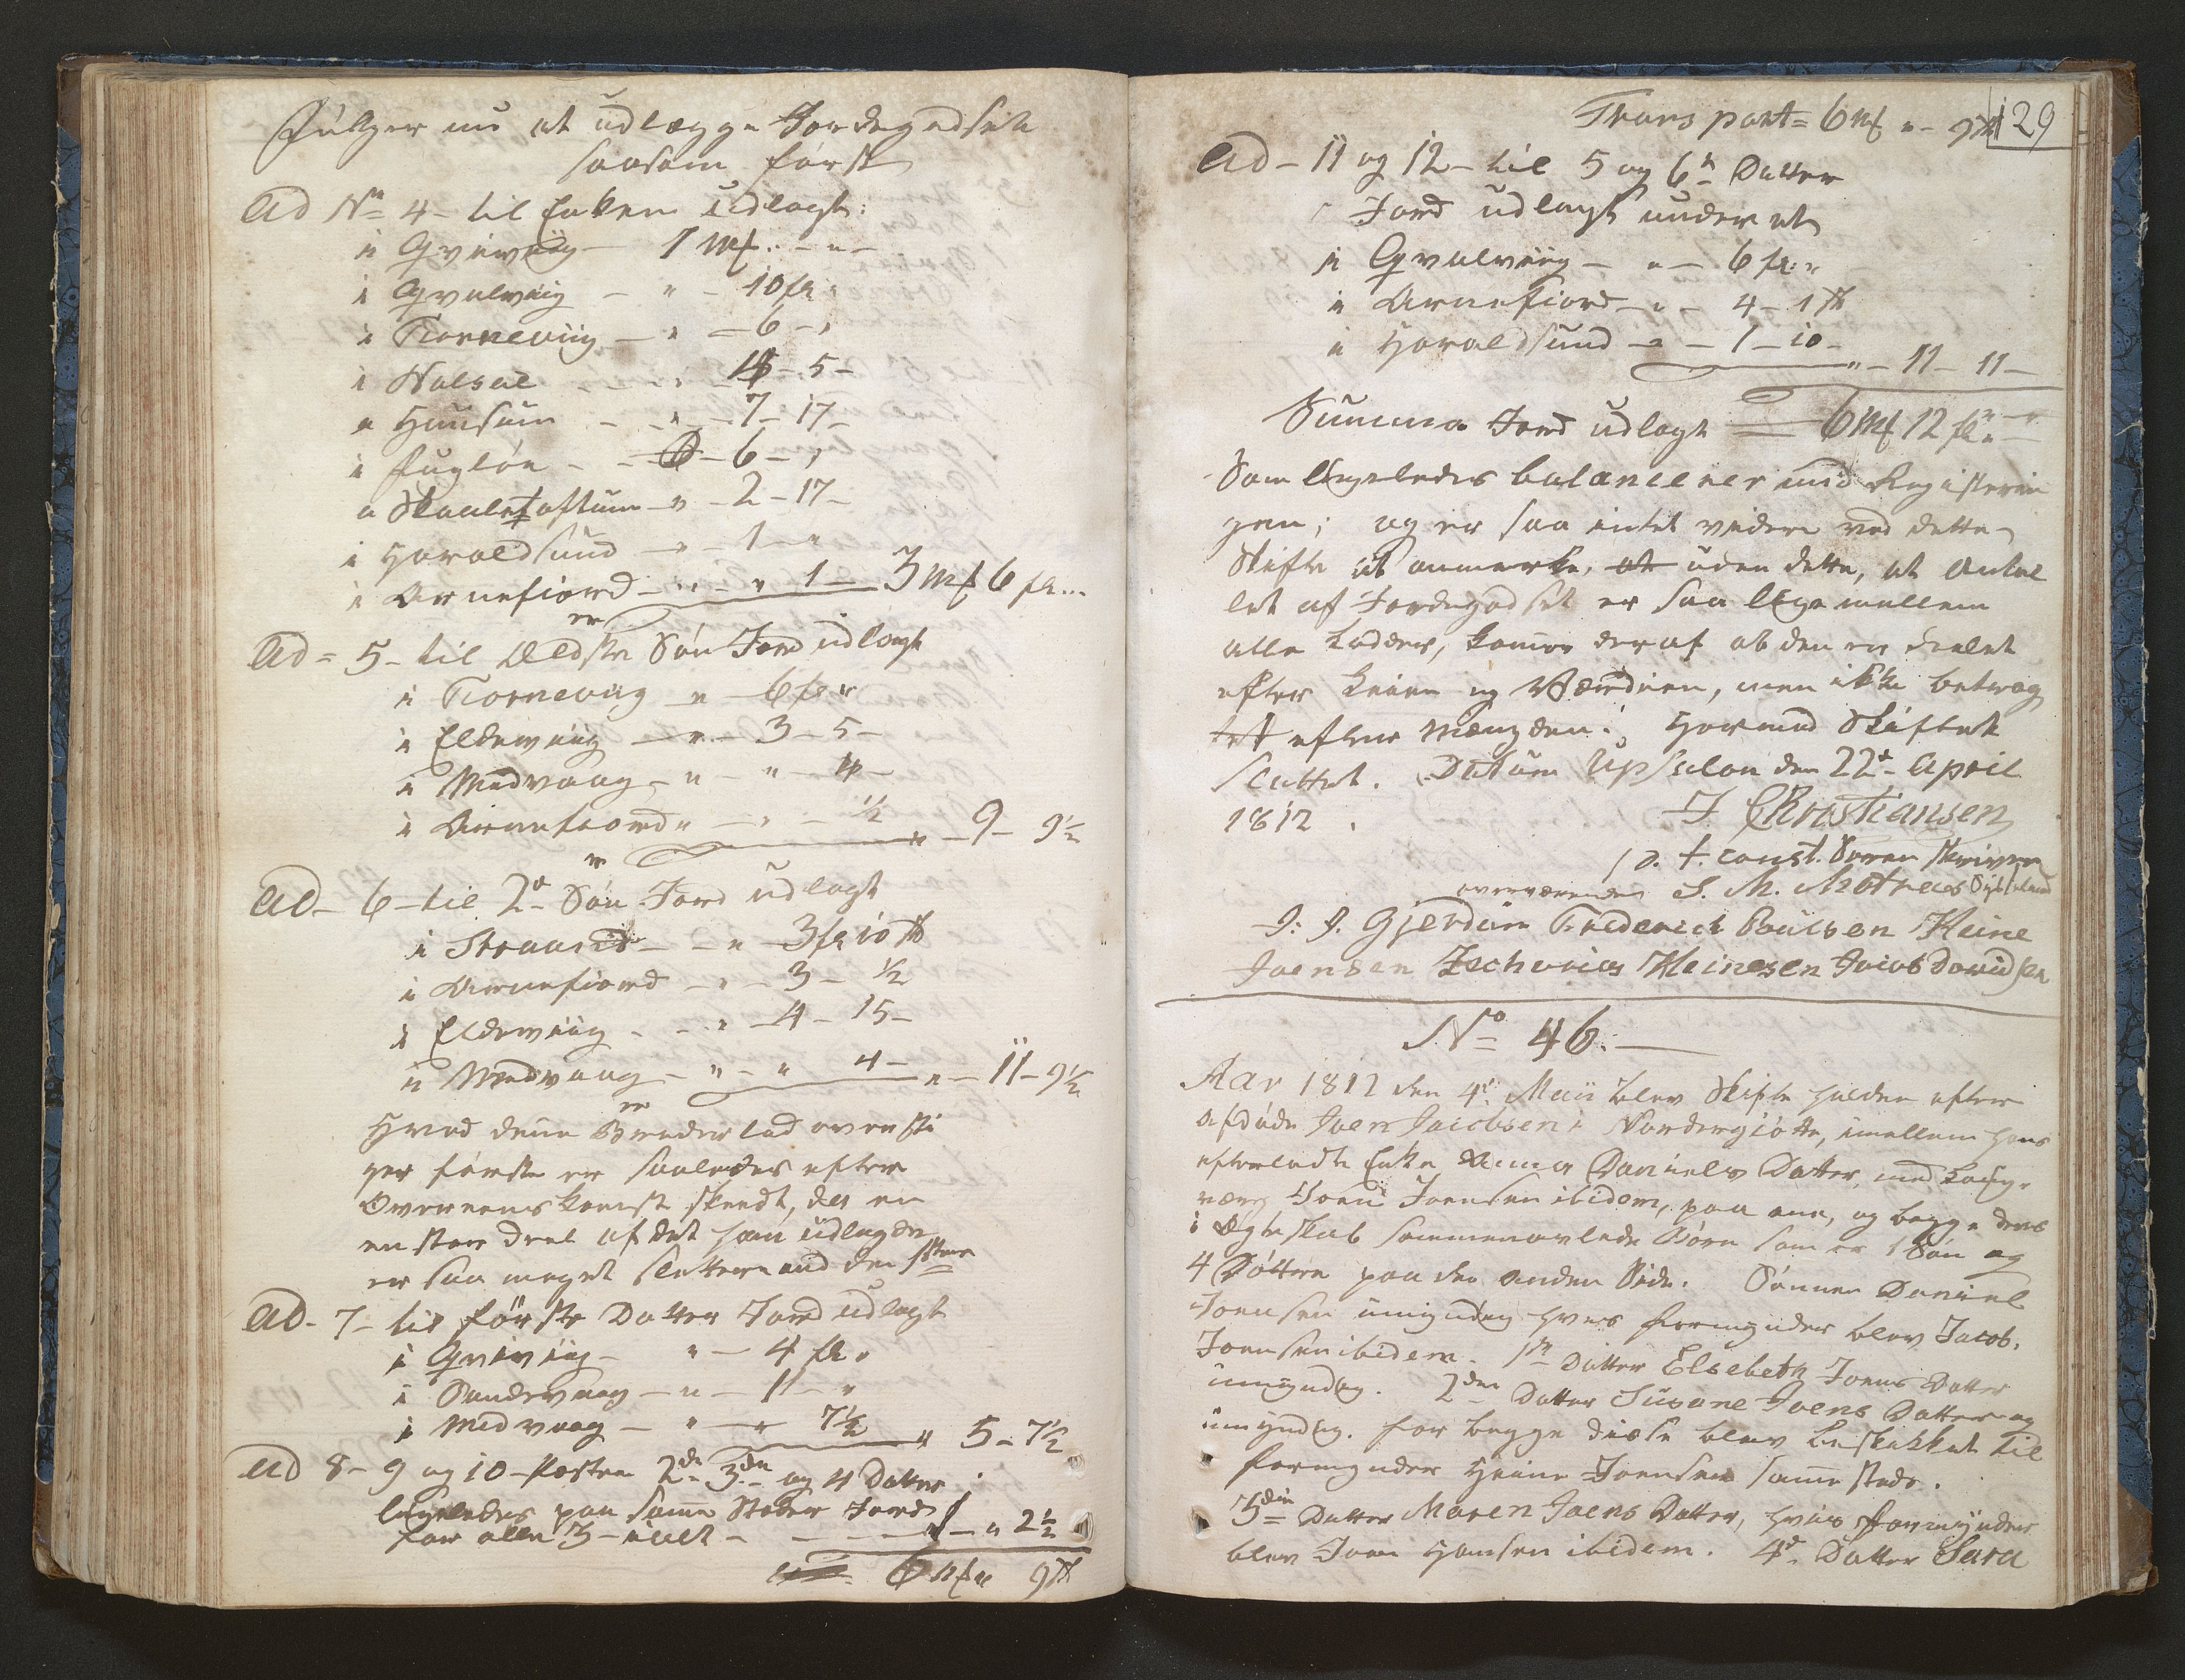 Følger nu at udlægge Jordegodset
saasom først
Ad No 4 - til Enken udlagt:
i Qviviig - 1 Mk. - " -
i Qvalviig - " - 10 fl: "
i Tiørneviig - " - 6 - "
i Nolsøe - " - - 5 -
i Huusum - " - 7 - 17 -
i Fugløe - - 6 - "
i Skaaletoftum - " - 2 - 17 -
i Haraldsund - " - 1 - "
i Arnefiord - " - " 1 - 3 Mk 6 fl...
er
Ad - 5 - til Ældste Søn Jord udlagt
i Tiørneviig " - 6 fl "
i Eldeviig - " - 3 - 5 -
i Midvaag - " - " - 4 -
i Arnefiord " - " - ½
" - 9 - 9½
er
Ad - 6 - til 2d Søn Jord udlagt
i - " - 3 fl 10 ß
i Arnefiord - " - 3 - ½
i Eldeviig - - " - 4 - 15 -
i Midvaag - " - " 4 - " - 11 - 9½
er
Hvad denne Broderlod oversti
ger første er saaledes efter
Overeenskomst skeedt, da en
en stor Deel af det ham udlagde
er saa meget slettere end den
Ad - 7 - til første Datter Jord udlagt
i Qviviig - " - 4 fl "
i Sandevaag - " - 1 - "
i Midvaag - " - " 7½
" 5 - 7½
Ad 8 - 9 og 10 - Poster 2den 3die og 4 Datter
ligeledes paa samme Steder Jord
for alle 3 - ialt - - - - " 2½
6 Mk " 9 ß
Transport = 6 Mk " - 9 ß
129
Ad - 11 og 12 - til 5 og 6te Datter
Jord udlagt under et
i Qvalviig - " - 6 fl: "
i Arnefiord - " - 4 - 1 ß
i Haraldsund - " - 1 - 10 -
" - 11 - 11 -
Summa Jord udlagt = 6 Mk 12 fl "
Som ligeledes balancerer med Registerin
gen; og er saa intet videre ved dette
Skifte at anmerke, at uden dette, at Antal
let af Jordegodset er saa lige mellem
alle Lodder, kommer deraf at den er deelet
efter Leien og Værdien, men ikke betrag
tet efter Mængden. Hermed Skiftet
sluttet. Datum Upsalon den 22d April
1812.
J Christiansen
p. t. const. Soren Skriver
overværende J. M. Matras Sysselmand
J: J. Gjerdum Friderich Poulsen Heine
Joensen Zacharias Heinesen Jacob Davidsen
No 46.
Aar 1812 den 4d Maii blev Skifte holden efter
afdøde Joen Jacobsen i Nordergjøtte, imellem hans
efterladte Enke Anna Daniels Datter, med Laug-
værge Joen Joensen ibidem, paa ene, og begge deres
i Ægteskab sammenavlede Børn som er 1 Søn og
4 Døttre paa den anden Side. Sønnen Daniel
Joensen umyndig hvis Formynder blev Jacob
Joensen ibidem. 1ste Datter Elsebeth Joens Datter
umyndig. 2den Datter Susane Joens Datter og
umyndig. for begge disse blev beskikket til
Formynder Heine Joensen samme steds.
3die Datter Maren Joens Datter, hvis Formynder
blev Joen Hansen ibidem. 4d Datter Sara